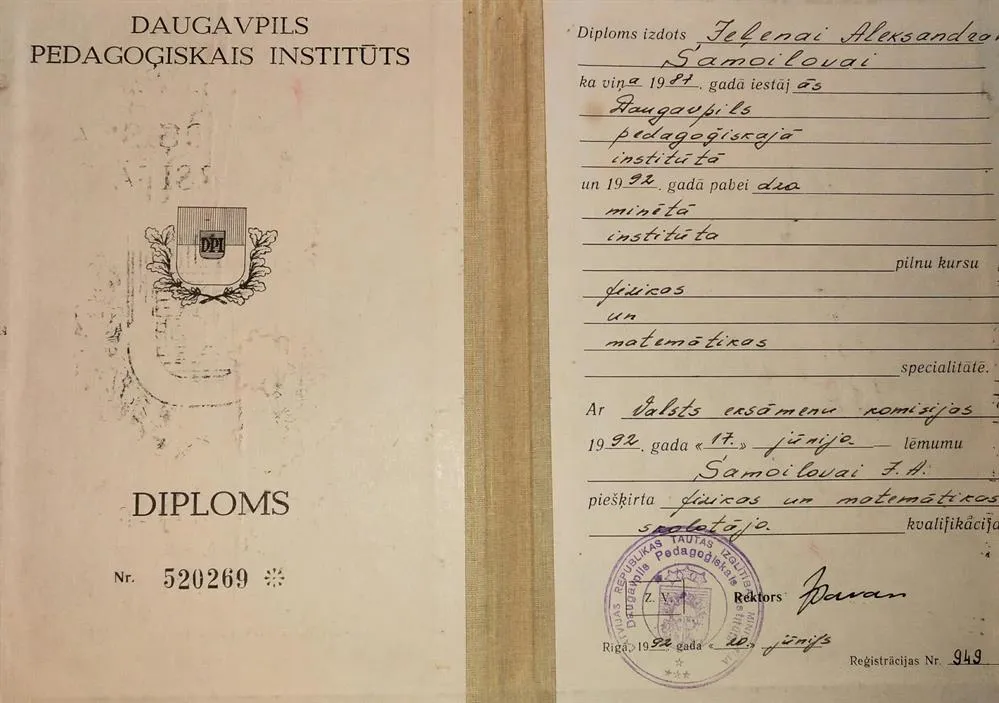 DAUGAVPILS
PEDAGOĢISKAIS INSTITŪTS
DPI
DIPLOMS
Nr. 520269
Diploms izdots Jeļenai Aleksandra
Samoilovai
ka viņa 1987. gadā iestājās
Daugavpils
pedagoģiskajā
institūtā
un 1992. gadā pabeidza
minētā
institūta
pilnu kursu
fizikas
un
matemātikas
specialitātē.
Ar Valsts eksāmenu komisijas
1992. gada «17.» jūnija lēmumu
Samoilovai J. A.
piešķirta fizikas un matemātikas
skolotāja kvalifikācija
LATVIJAS REPUBLIKAS TAUTAS IZGLĪTĪBAS MINISTRIJA
Daugavpils Pedagoģiskais institūts
Z. V. Rektors
Rīgā, 1992 gada «20.» jūnijs
Reģistrācijas Nr. 949